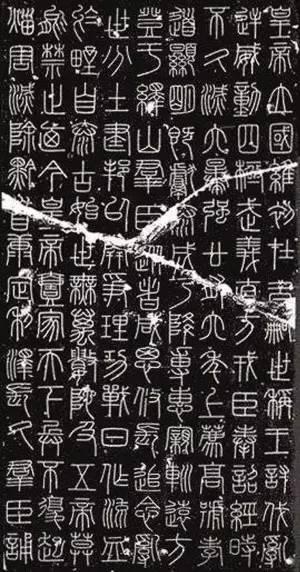 皇帝立國維初在昔嗣世稱王討伐亂
逆威動四極武義直方戎臣奉詔經時
不久滅六暴強廿有六年上薦高號孝
道顯明既獻泰成乃降尃惠親巡遠方
登于繹山群臣從者咸思攸長追念亂
世分土建邦以開爭理功戰日作流血
於野自泰古始世無萬數陀及五帝莫
能禁止迺今皇帝壹家天下兵不復起
災害滅除黔首康定利澤長久群臣誦